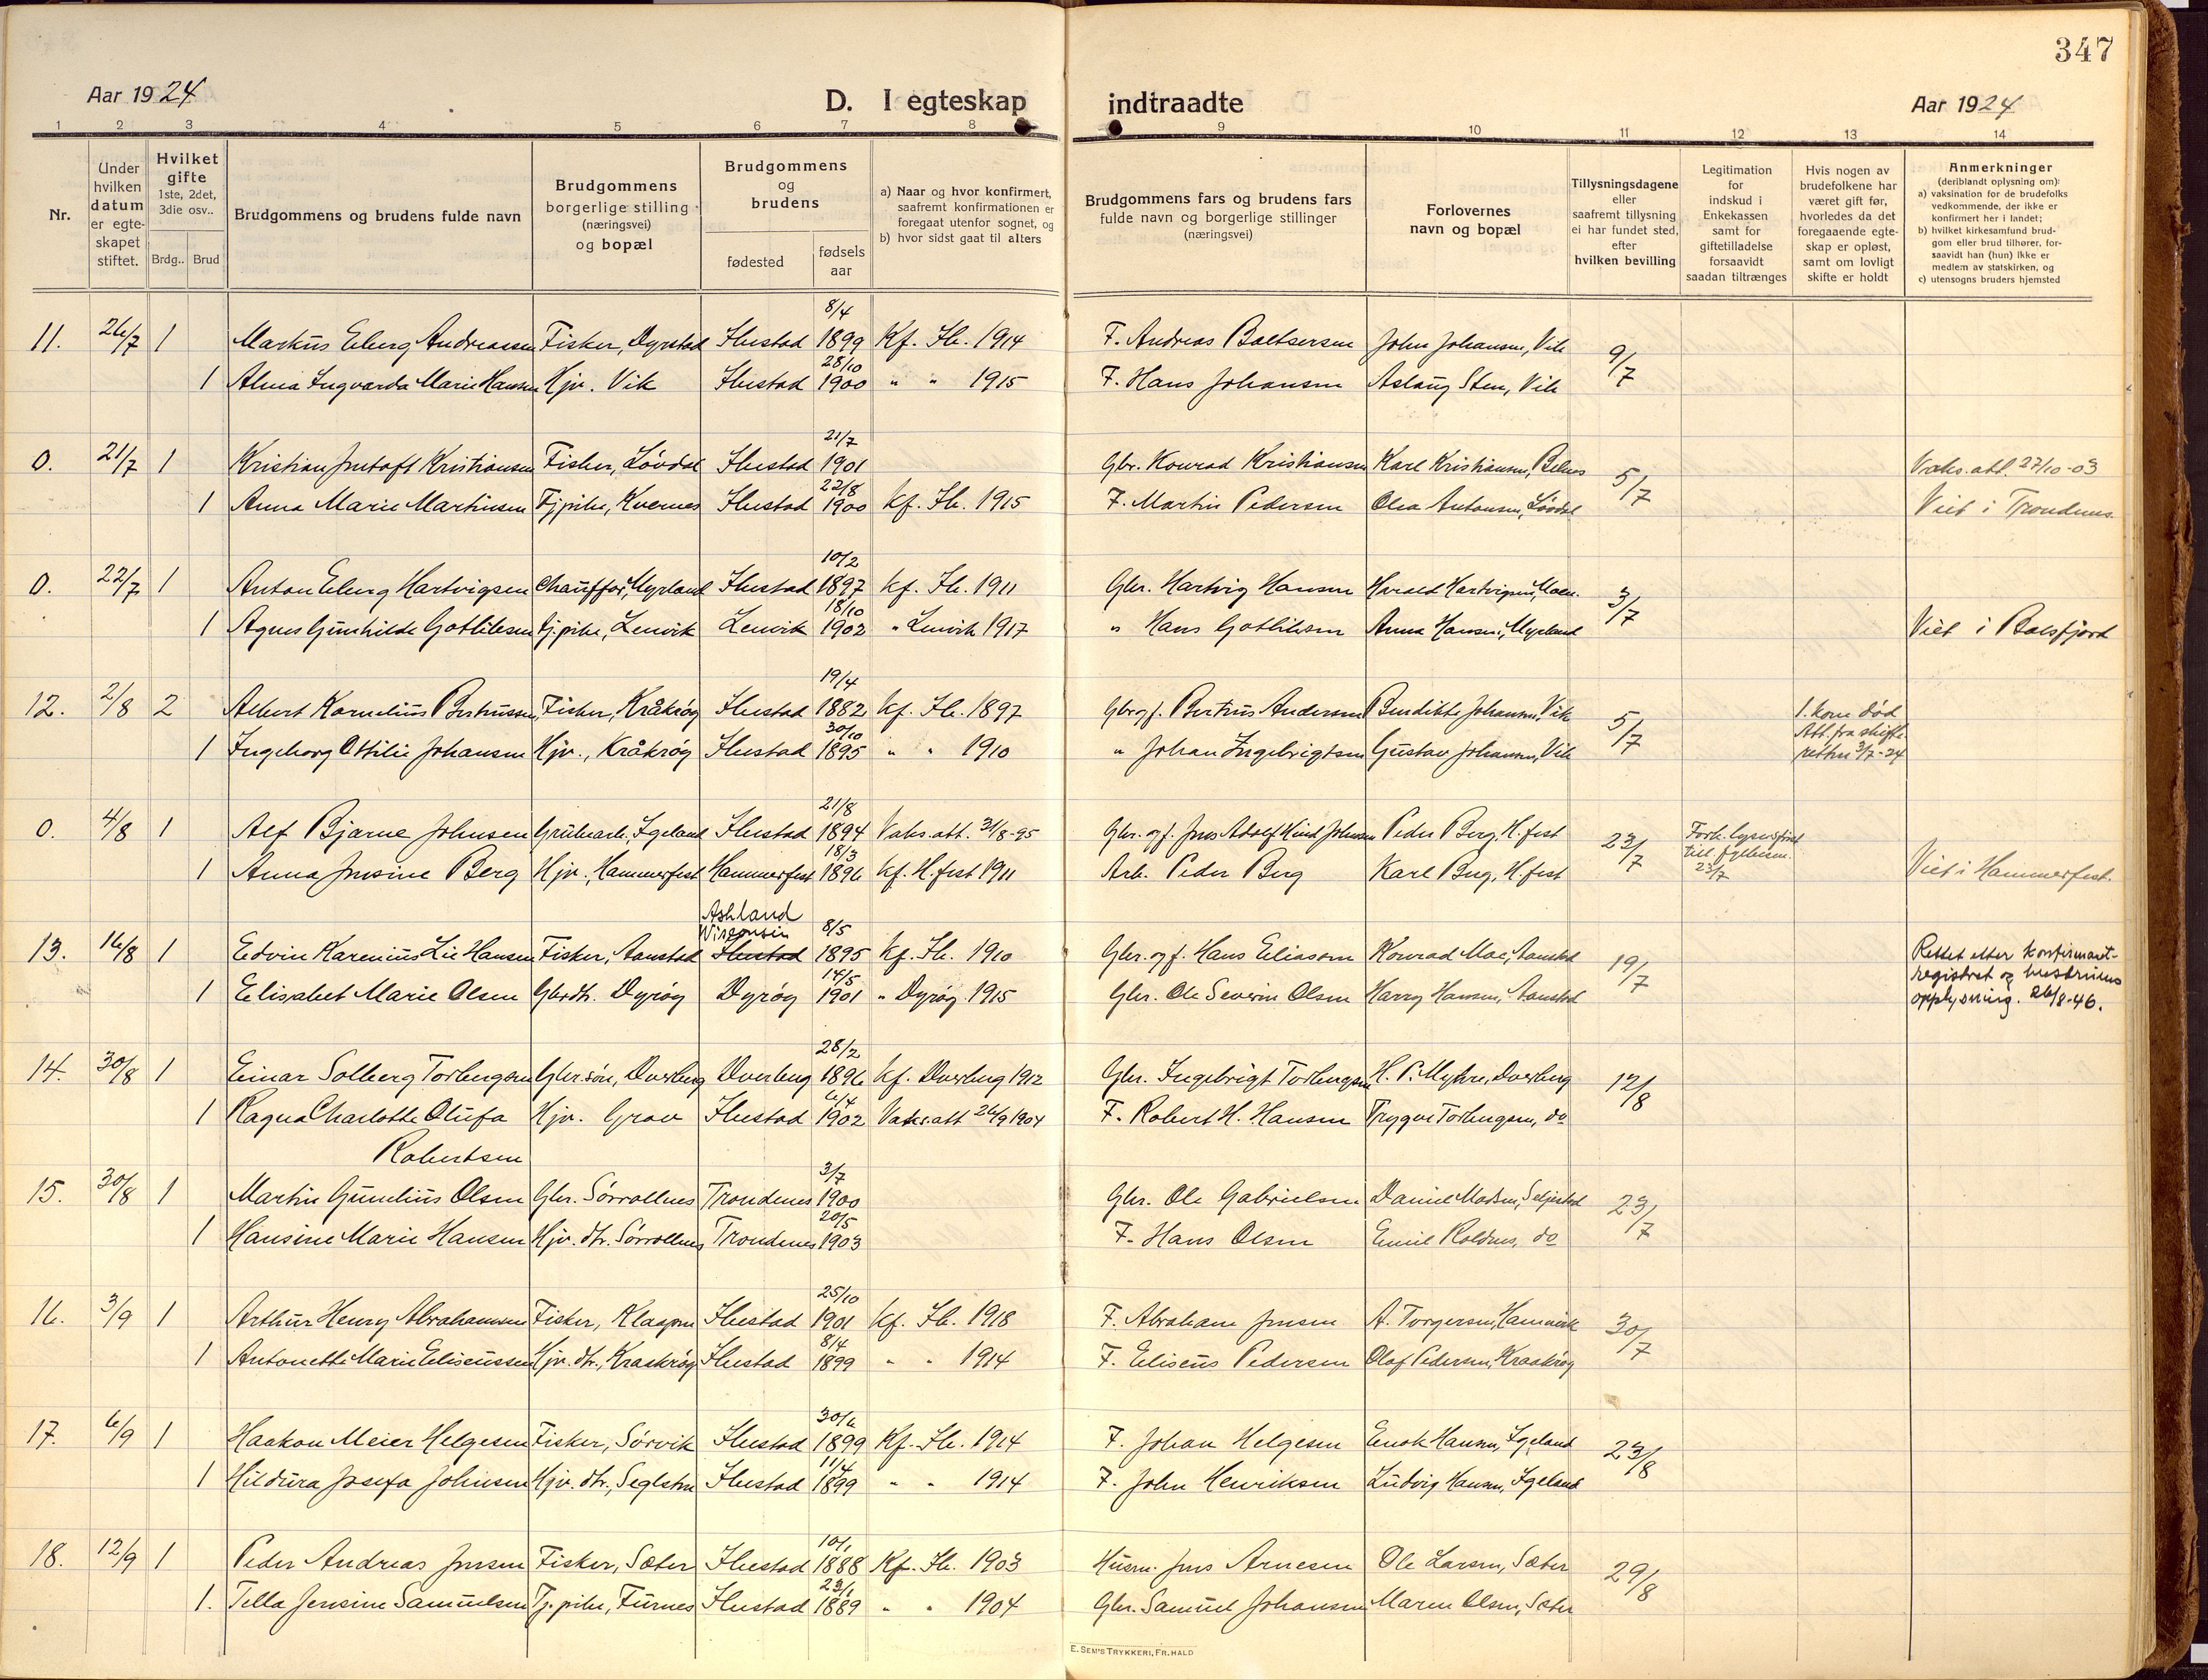 347
Aar 1924
D. I egteskap indtraadte
Aar 1924
1 2 3 4 5 6 7 8 9 10 11 12 13 14
Nr.
Under hvilken datum er egte-skapet stiftet.
Hvilket gifte 1ste, 2det, 3die osv..
Brdg.. Brud
Brudgommens og brudens fulde navn
Brudgommens borgerlige stilling (næringsvei) og bopæl
Brudgommens og brudens
fødested
fødsels aar
a) Naar og hvor konfirmert, saafremt konfirmationen er foregaat utenfor sognet, og
b) hvor sidst gaat til alters
Brudgommens fars og brudens fars fulde navn og borgerlige stillinger (næringsvei)
Forlovernes navn og bopæl
Tillysningsdagene eller saafremt tillysning ei har fundet sted, efter hvilken bevilling
Legitimation for indskud i Enkekassen samt for giftetilladelse forsaavidt saadan tiltrænges
Hvis nogen av brudefolkene har været gift før, hvorledes da det foregaaende egte-skap er opløst, samt om lovligt skifte er holdt
Anmerkninger
(deriblandt oplysning om):
a) vaksination for de brudefolks vedkommende, der ikke er konfirmert her i landet;
b) hvilket kirkesamfund brud-gom eller brud tilhører, for-saavidt han (hun) ikke er medlem av statskirken, og
c) utensogns bruders hjemsted
11. 26/7 1 Markus Elberg Andreassen Fisker, Dyrstad Ibestad 8/4 1899 Kf. Ib. 1914 F. Andreas Baltsersen John Johansen, Vik 9/7
1 Alma Ingvarda Marie Hansen Hjv. Vik Ibestad 28/10 1900 " " 1915 F. Hans Johansen Aslaug Sten, Vik
0. 21/7 1 Kristian Justoft Kristiansen Fisker, Løvdal Ibestad 21/7 1901 Gbr. Konrad Kristiansen Karl Kristiansen, 5/7 Vaks.att. 27/10-03
1 Anna Marie Martinsen Tjpike, Kvernes Ibestad 22/8 1900 Kf. Ib. 1915 F. Martin Pedersen Olea Antonsen, Løvdal Viet i Trondenes
0. 22/7 1 Anton Elberg Hartvigsen Chauffør, Myrland Ibestad 10/2 1897 Kf. Ib. 1911 Gbr. Hartvig Hansen Harald Hartvigsen, Moen. 3/7
1 Agnes Gunhilde Gotlibsen Tj.pike, Lenvik Lenvik 18/10 1902 " Lenvik 1917 " Hans Gotlibsen Anna Hansen, Myrland Viet i Balsfjord
12. 2/8 2 Albert Kornelius Berteussen, Fisker, Kråkrøg Ibestad 19/4 1882 Kf. Ib. 1897 Gbr og f. Berteus Andersen Bendikte Johansen, Vik 5/7 1. kone død
1 Ingeborg Otilie Johansen Hjv., Kråkrøg Ibestad 30/10 1895 " " 1910 " Johan Ingebrigtsen Gustav Johansen, Vik Att. fra skifte-
retten 3/7-24
0. 4/8 1 Alf Bjarne Johnsen Grubearb. Igeland Ibestad 21/8 1894 Vaks.att. 31/8-95 Gbr. og f. Jens Adolf Hind Johnsen Peder Berg, H.fest 23/7 Forh. lysn
1 Anna Jensine Berg Hjv., Hammerfest Hammerfest 18/3 1896 Kf. H.fest 1911 Arb. Peder Berg Karl Berg, H.fest 23/7 Viet i Hammerfest.
Ashland
Wisconsin
13. 16/8 1 Edvin Karenius Lie Hansen Fisker, Aanstad Ibestad 8/5 1895 Kf. Ib. 1910 Gbr. og f. Hans Eliassen Konrad Moe, Aanstad 19/7 Rettet etter konfirmant-
1 Elisabet Marie Olsen Gbrdtr. Dyrøy Dyrøy 14/5 1901 " Dyrøy 1915 Gbr. Ole Severin Olsen Harry Hansen, Aanstad registret og hustruens
opplysning. 26/8-46.
14. 30/8 1 Einar Solberg Torbergsen Gbr.søn, Dverberg Dverberg 28/2 1896 Kf. Dverberg 1912 Gbr. Ingebrigt Torbergsen H. P. Myhre, Dverberg 12/8
1 Ragna Charlotte Olufa Hjv. Grov Ibestad 6/4 1902 Vaks.att 26/9 1904 F. Robert H. Hansen Trygve Torbergsen, do
Robertsen
15. 30/8 1 Martin Gunelius Olsen Gbr. Sørrollnes Trondenes 3/7 1900 Gbr. Ole Gabrielsen Daniel Madsen, Seljestad 23/7
1 Hansine Marie Hansen Hjv. dtr. Sørrollnes Trondenes 20/5 1903 F. Hans Olsen Emil Roldnes, do
16. 3/9 1 Arthur Henry Abrahamsen Fisker, Klaapen Ibestad 25/10 1901 Kf. Ib. 1918 F. Abraham Jensen A. Torgersen, Hamnvik 30/7
1 Antonette Marie Eliseussen Hjv. dtr., Kraakrøg Ibestad 8/4 1899 " " 1914 F. Eliseus Pedersen Olaf Pedersen, Kraakrøg
17. 6/9 1 Haakon Meier Helgesen Fisker, Sørvik Ibestad 30/6 1899 Kf. Ib. 1914 F. Johan Helgesen Enok Hansen, Igeland 23/8
1 Hildura Josefa Johnsen Hjv. dtr., Seglstein Ibestad 11/4 1899 " " 1914 F. John Henriksen Ludvig Hansen, Igeland
18. 12/9 1 Peder Andreas Jensen Fisker, Sæter Ibestad 10/1 1888 Kf. Ib. 1903 Husm. Jens Arnesen Ole Larsen, Sæter 29/8
1. Tella Jensine Samuelsen Tj. pike, Furnes Ibestad 23/1 1889 " " 1904 Gbr. Samuel Johansen Maren Olsen, Sæter
E. SEM'S TRYKKERI, FR.HALD